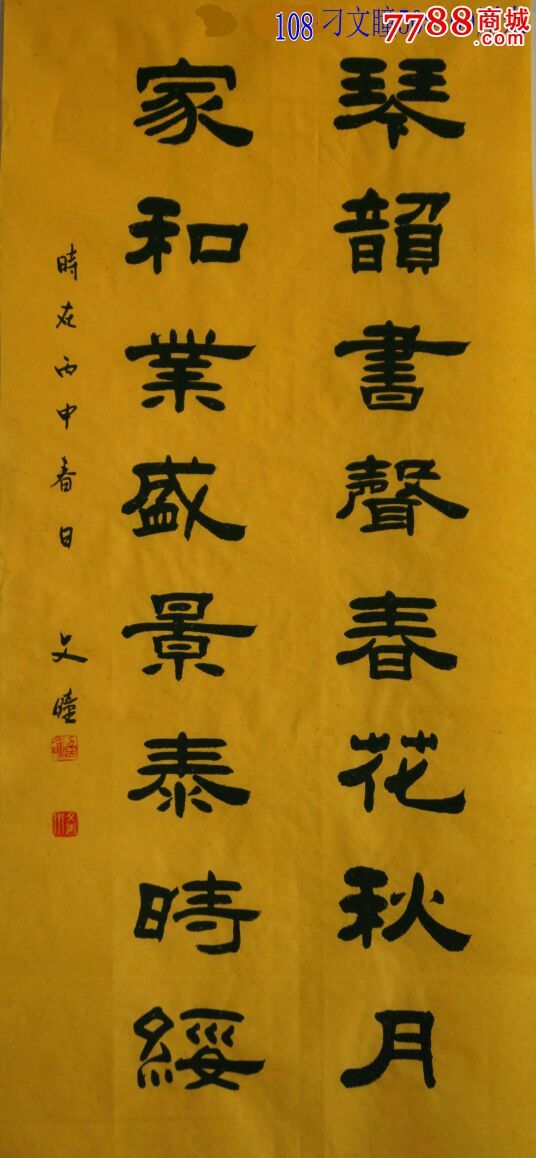 108 刁文瞳50
7788商城
琴韻書聲春花秋月
家和業盛景泰時綏
時在丙申春日 文瞳